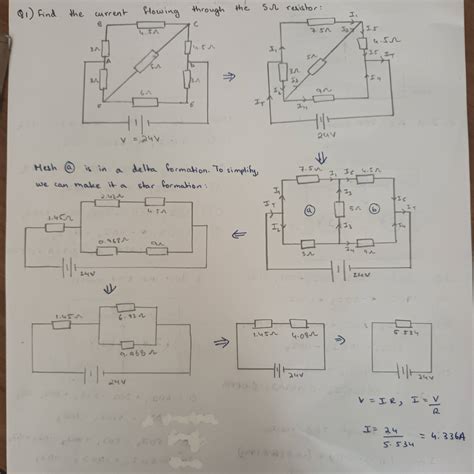 Q1) Find the current flowing through the 5Ω resistor:
B
4.5Ω
C
3Ω
5Ω
4.5Ω
A
D
3Ω
6Ω
F
E
V = 24V
⇒
7.5Ω
I1
I5
4.5Ω
3Ω
5Ω
9Ω
I4
IT
24V
Mesh ⓐ is in a delta formation. To simplify,
we can make it a star formation:
4.5Ω
1.45Ω
9Ω
24V
7.5Ω
I1
I5
4.5Ω
IT
ⓐ
5Ω
ⓑ
I3
3Ω
I4
9Ω
24V
1.45Ω
24V
1.45Ω
4.08Ω
24V
5.534
24V
V = I.R, I = V/R
I = 24/5.534 = 4.336A